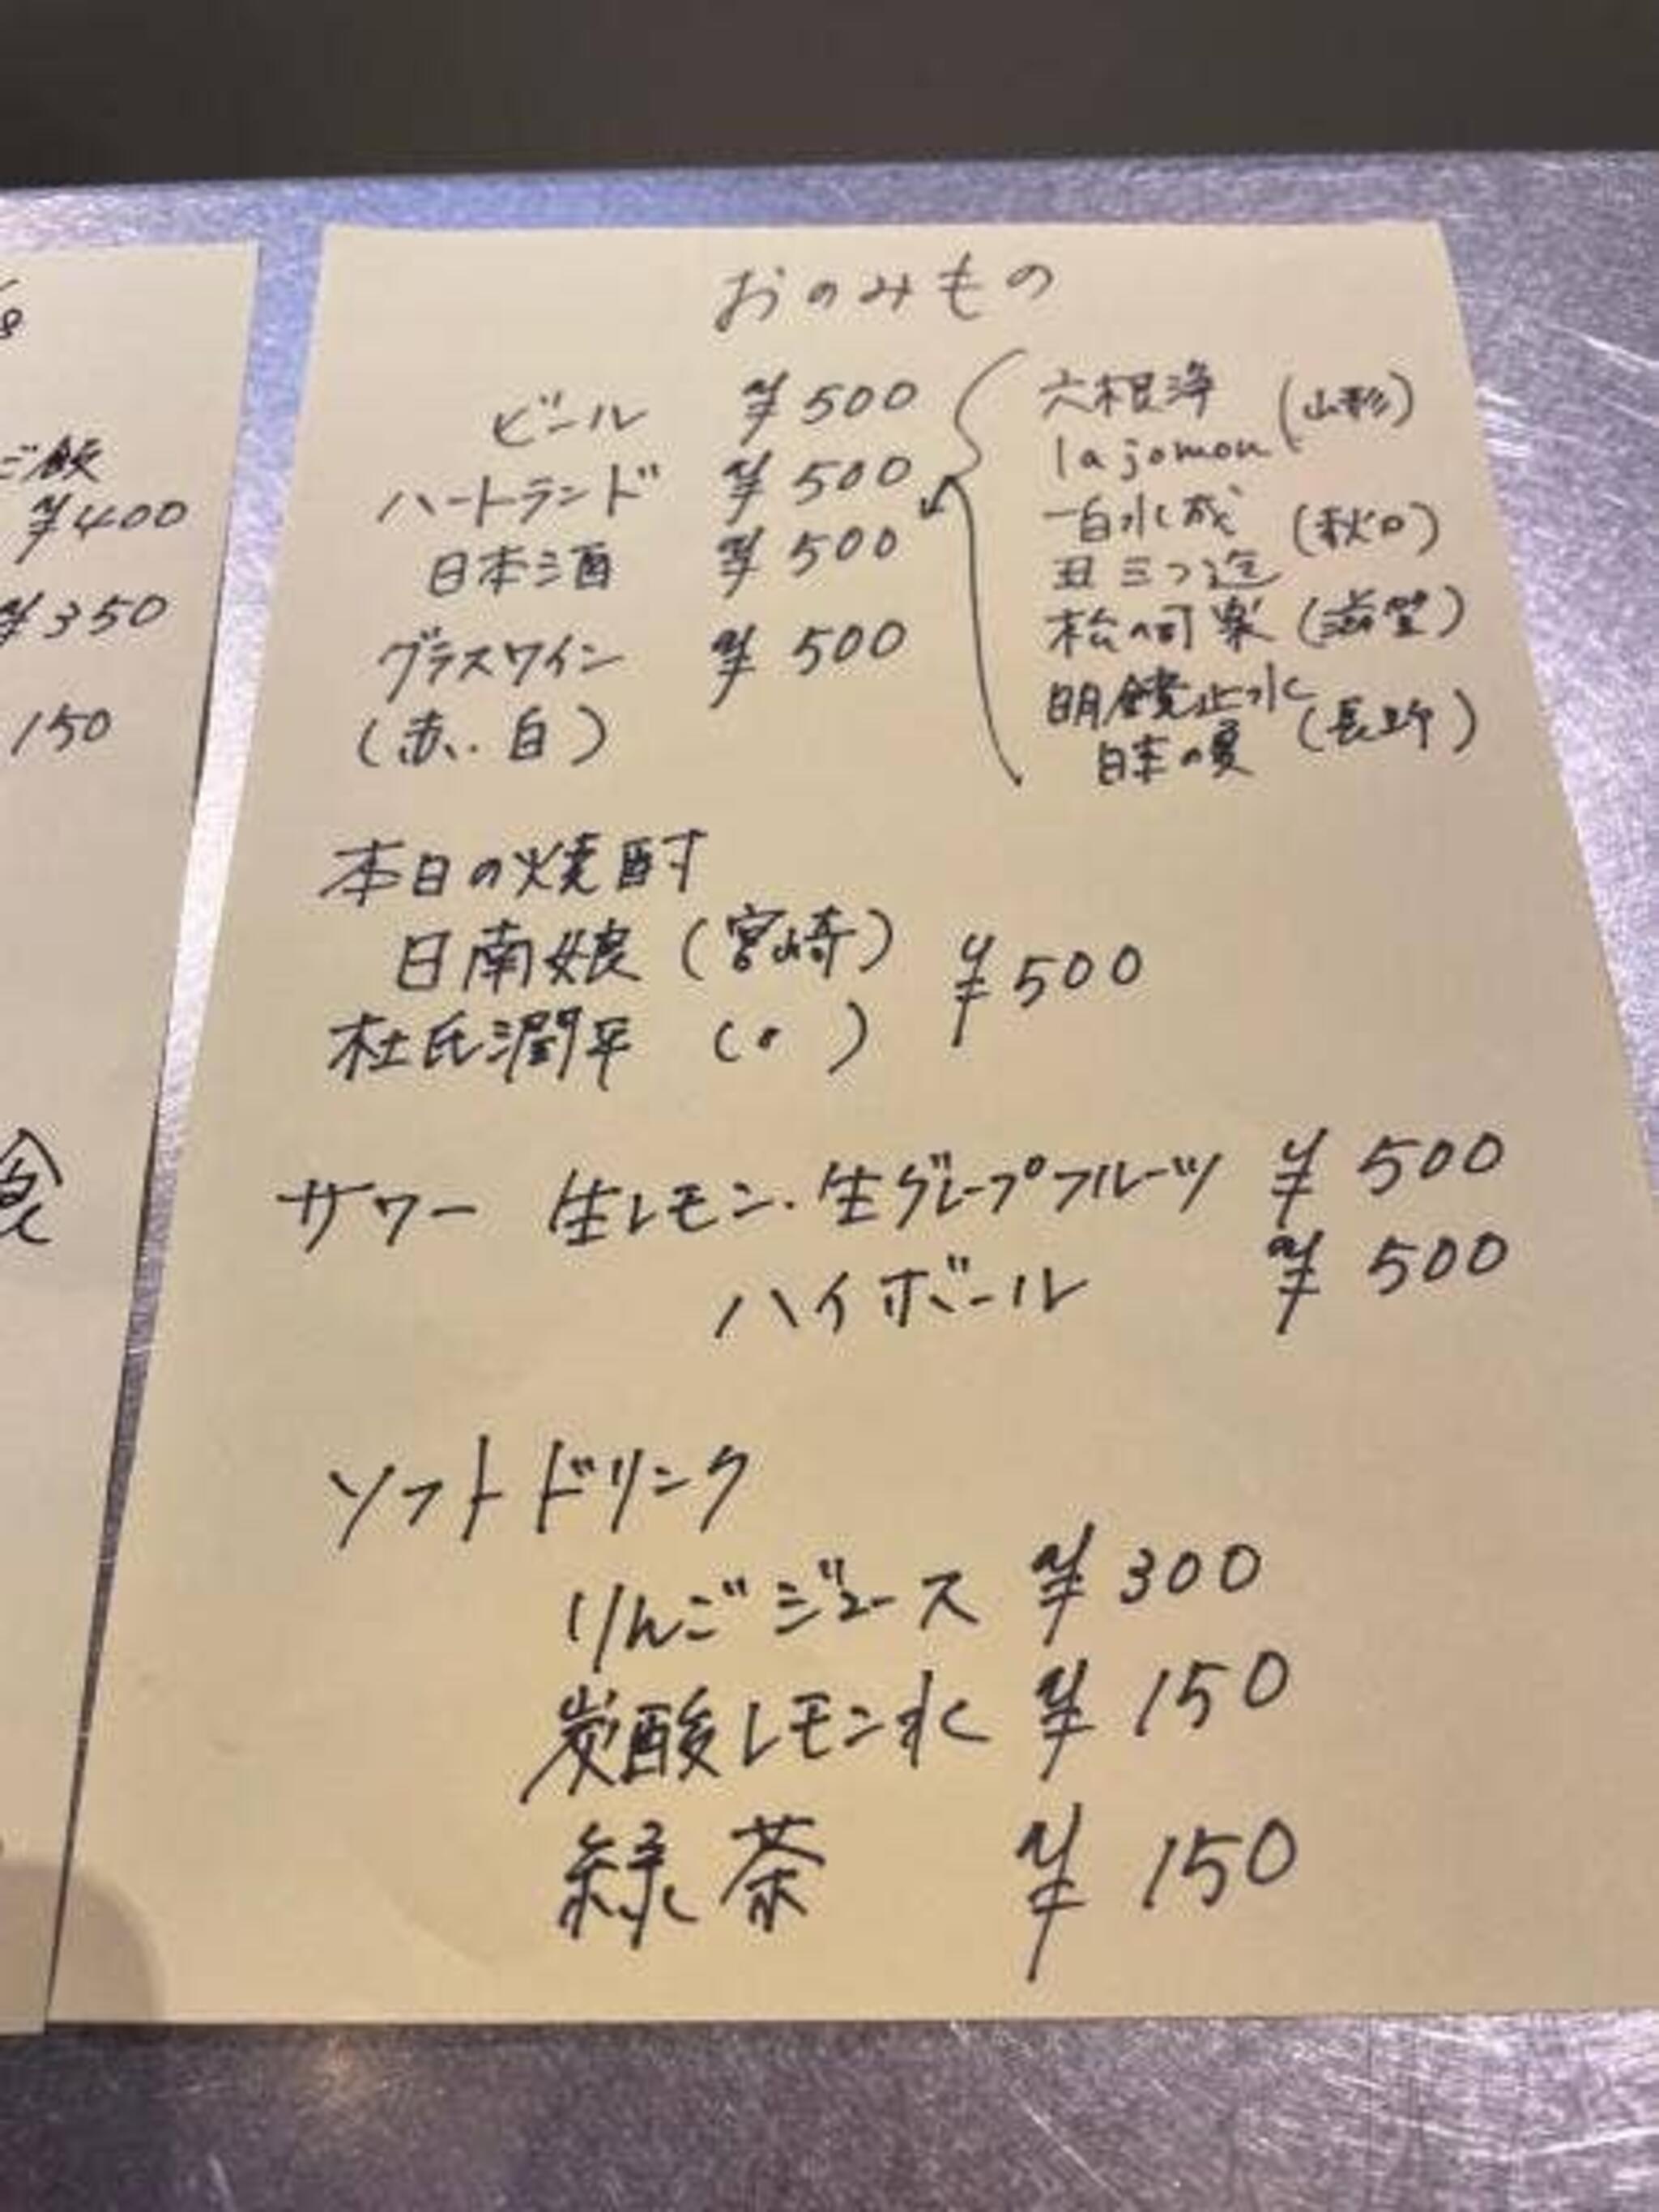 ご飯
¥400
¥350
150
食
おのみもの
ビール ¥500
ハートランド ¥500
日本酒 ¥500
グラスワイン ¥500
(赤・白)
六根浄 (山形)
la jomon
一白水成 (秋田)
丑三つ迄
松の司 楽 (滋賀)
明鏡止水 (長野)
日本の夏
本日の焼酎
日南娘 (宮崎) ¥500
杜氏潤平 (〃)
サワー 生レモン・生グレープフルーツ ¥500
ハイボール ¥500
ソフトドリンク
りんごジュース ¥300
炭酸レモン水 ¥150
緑茶 ¥150